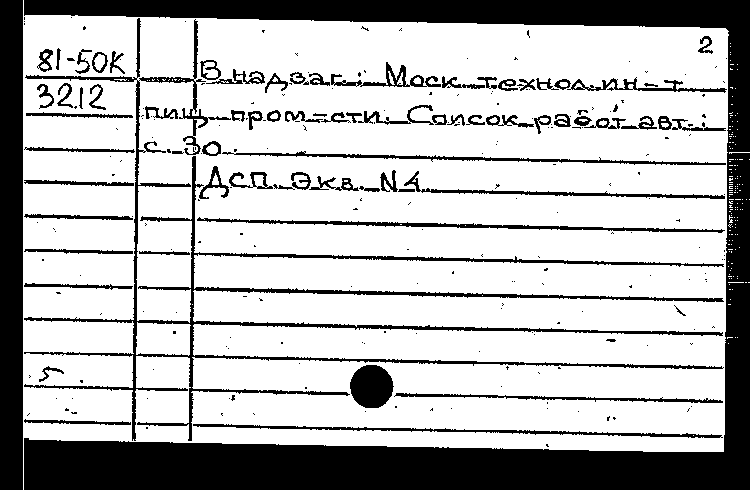 2
81-50К В надзаг.: Моск. технол. ин-т
3212 пищ. пром-сти. Список работ авт.:
с. 30.
ДСП. Экв. N4
5